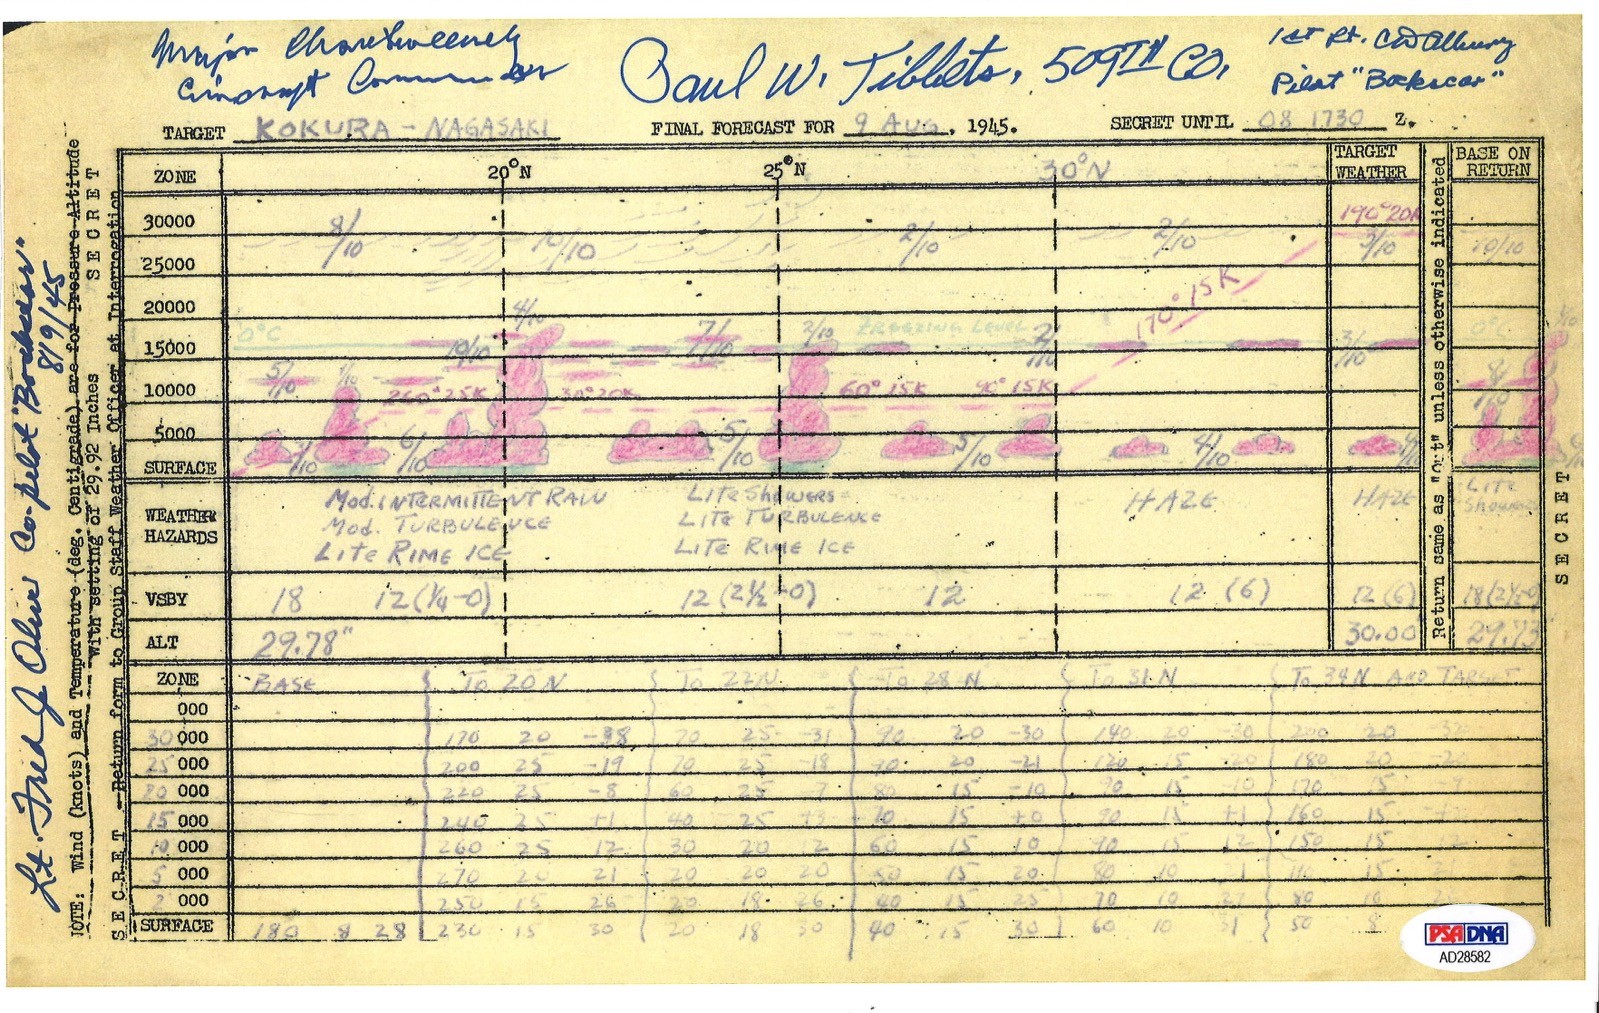 Major Charles Sweeney
Aircraft Commander
Paul W. Tibbets, 509TH CO,
1st Lt. CD Albury
Pilot "Bockscar"
Lt. Fred J Olivi Co-pilot "Bockscar"
8/9/45
NOTE: Wind (knots) and Temperature (deg. Centigrade) are for Pressure Altitude
with setting of 29.92 Inches
SECRET
SECRET - Return form to Group Staff Weather Officer at Interrogation
TARGET KOKURA - NAGASAKI FINAL FORECAST FOR 9 AUG, 1945. SECRET UNTIL 08 1730 Z.
ZONE 20°N 25°N 30°N TARGET WEATHER BASE ON RETURN
Return same as "out" unless otherwise indicated
SECRET
30000 190° 20K
8/10 10/10 2/10 2/10 3/10 10/10
25000
170° 15K
20000 4/10
0°C 7/10 2/10 FREEZING LEVEL 2/10 0°C
15000 10/10 3/10
5/10 1/10
10000 260° 25K 30° 20K 60° 15K 90° 15K
5000
6/10 5/10 5/10 4/10
SURFACE
WEATHER HAZARDS
MOD. INTERMITTENT RAIN LITE SHOWERS HAZE HAZE LITE SHOWERS
MOD. TURBULENCE LITE TURBULENCE
LITE RIME ICE LITE RIME ICE
VSBY 18 12 (1/4-0) 12 (2 1/2-0) 12 12 (6) 12 (6) 18 (2 1/2-0)
ALT 29.78" 30.00 29.73
ZONE BASE TO 20N TO 22N TO 28N TO 31N TO 34N AND TARGET
000
30 000 170 20 -38 70 25 -31 90 20 -30 140 20 -30 200 20
25 000 200 25 -19 70 25 -18 90 20 -21 120 15 -20 180 20
20 000 220 25 -8 60 25 -7 80 15 -10 90 15 -10 170 15
15 000 240 25 +1 40 25 +3 15 +0 90 15 +1 160 15
10 000 260 25 12 30 20 12 60 15 10 90 15 12 150 15
5 000 270 20 21 20 20 20 50 15 20 80 10 110 15
2 000 250 15 26 20 18 26 40 15 25 70 10 80 10
SURFACE 180 8 28 230 15 30 20 18 30 40 15 30 60 10 31 50 8
PSA DNA
AD28582